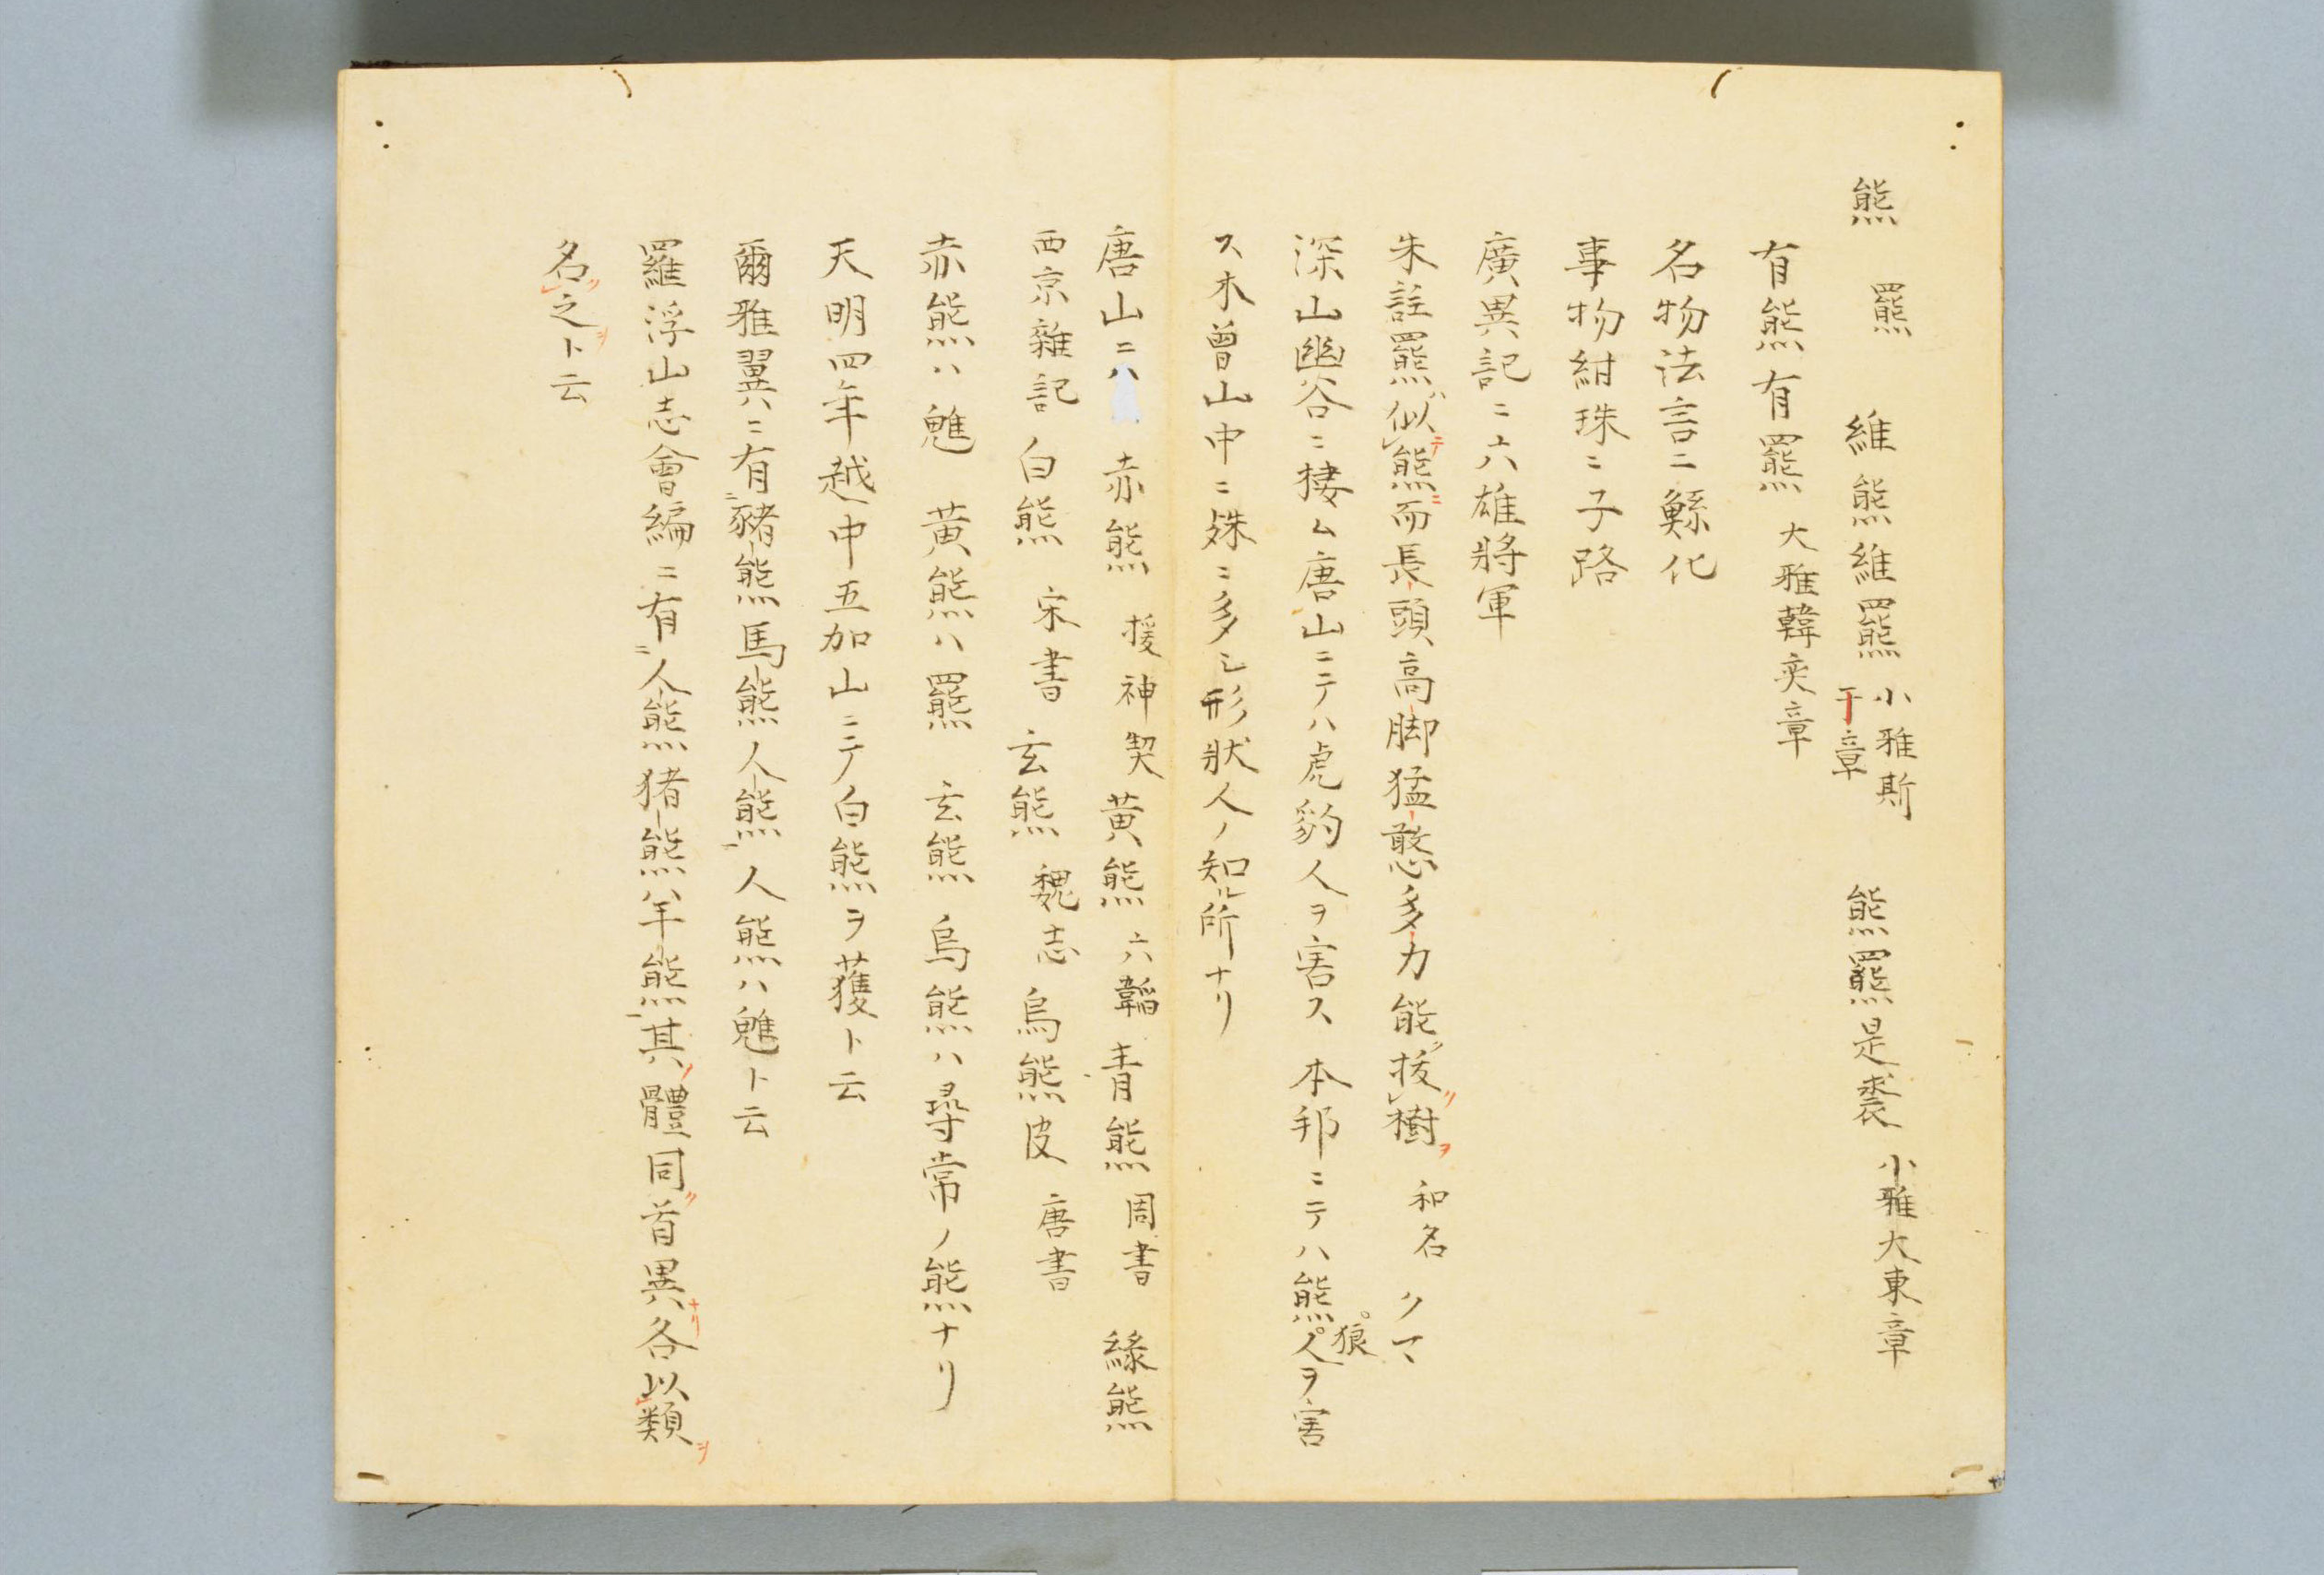 熊 羆 維熊維羆 小雅斯干章 熊羆是裘 小雅大東章
有熊有羆 大雅韓奕章
名物法言ニ鯀化
事物紺珠ニ子路
廣異記ニ六雄將軍
朱註羆似熊而長頭高脚猛憨多力能拔樹 和名 クマ
深山幽谷ニ捿ム唐山ニテハ虎豹人ヲ害ス 本邦ニテハ熊狼人ヲ害
ス木曾山中ニ殊ニ多シ形狀人ノ知ル所ナリ
唐山ニハ 赤熊 援神契 黄熊 六韜 青熊 周書 緣熊
西京雜記 白熊 宋書 玄熊 魏志 烏熊皮 唐書
赤熊ハ魋 黄熊ハ羆 玄熊 烏熊ハ尋常ノ熊ナリ
天明四年越中五加山ニテ白熊ヲ獲ト云
爾雅翼ニ有豬熊馬熊人熊 人熊ハ魋ト云
羅浮山志會編ニ有人熊猪熊羊熊其體同首異各以類
名之ト云